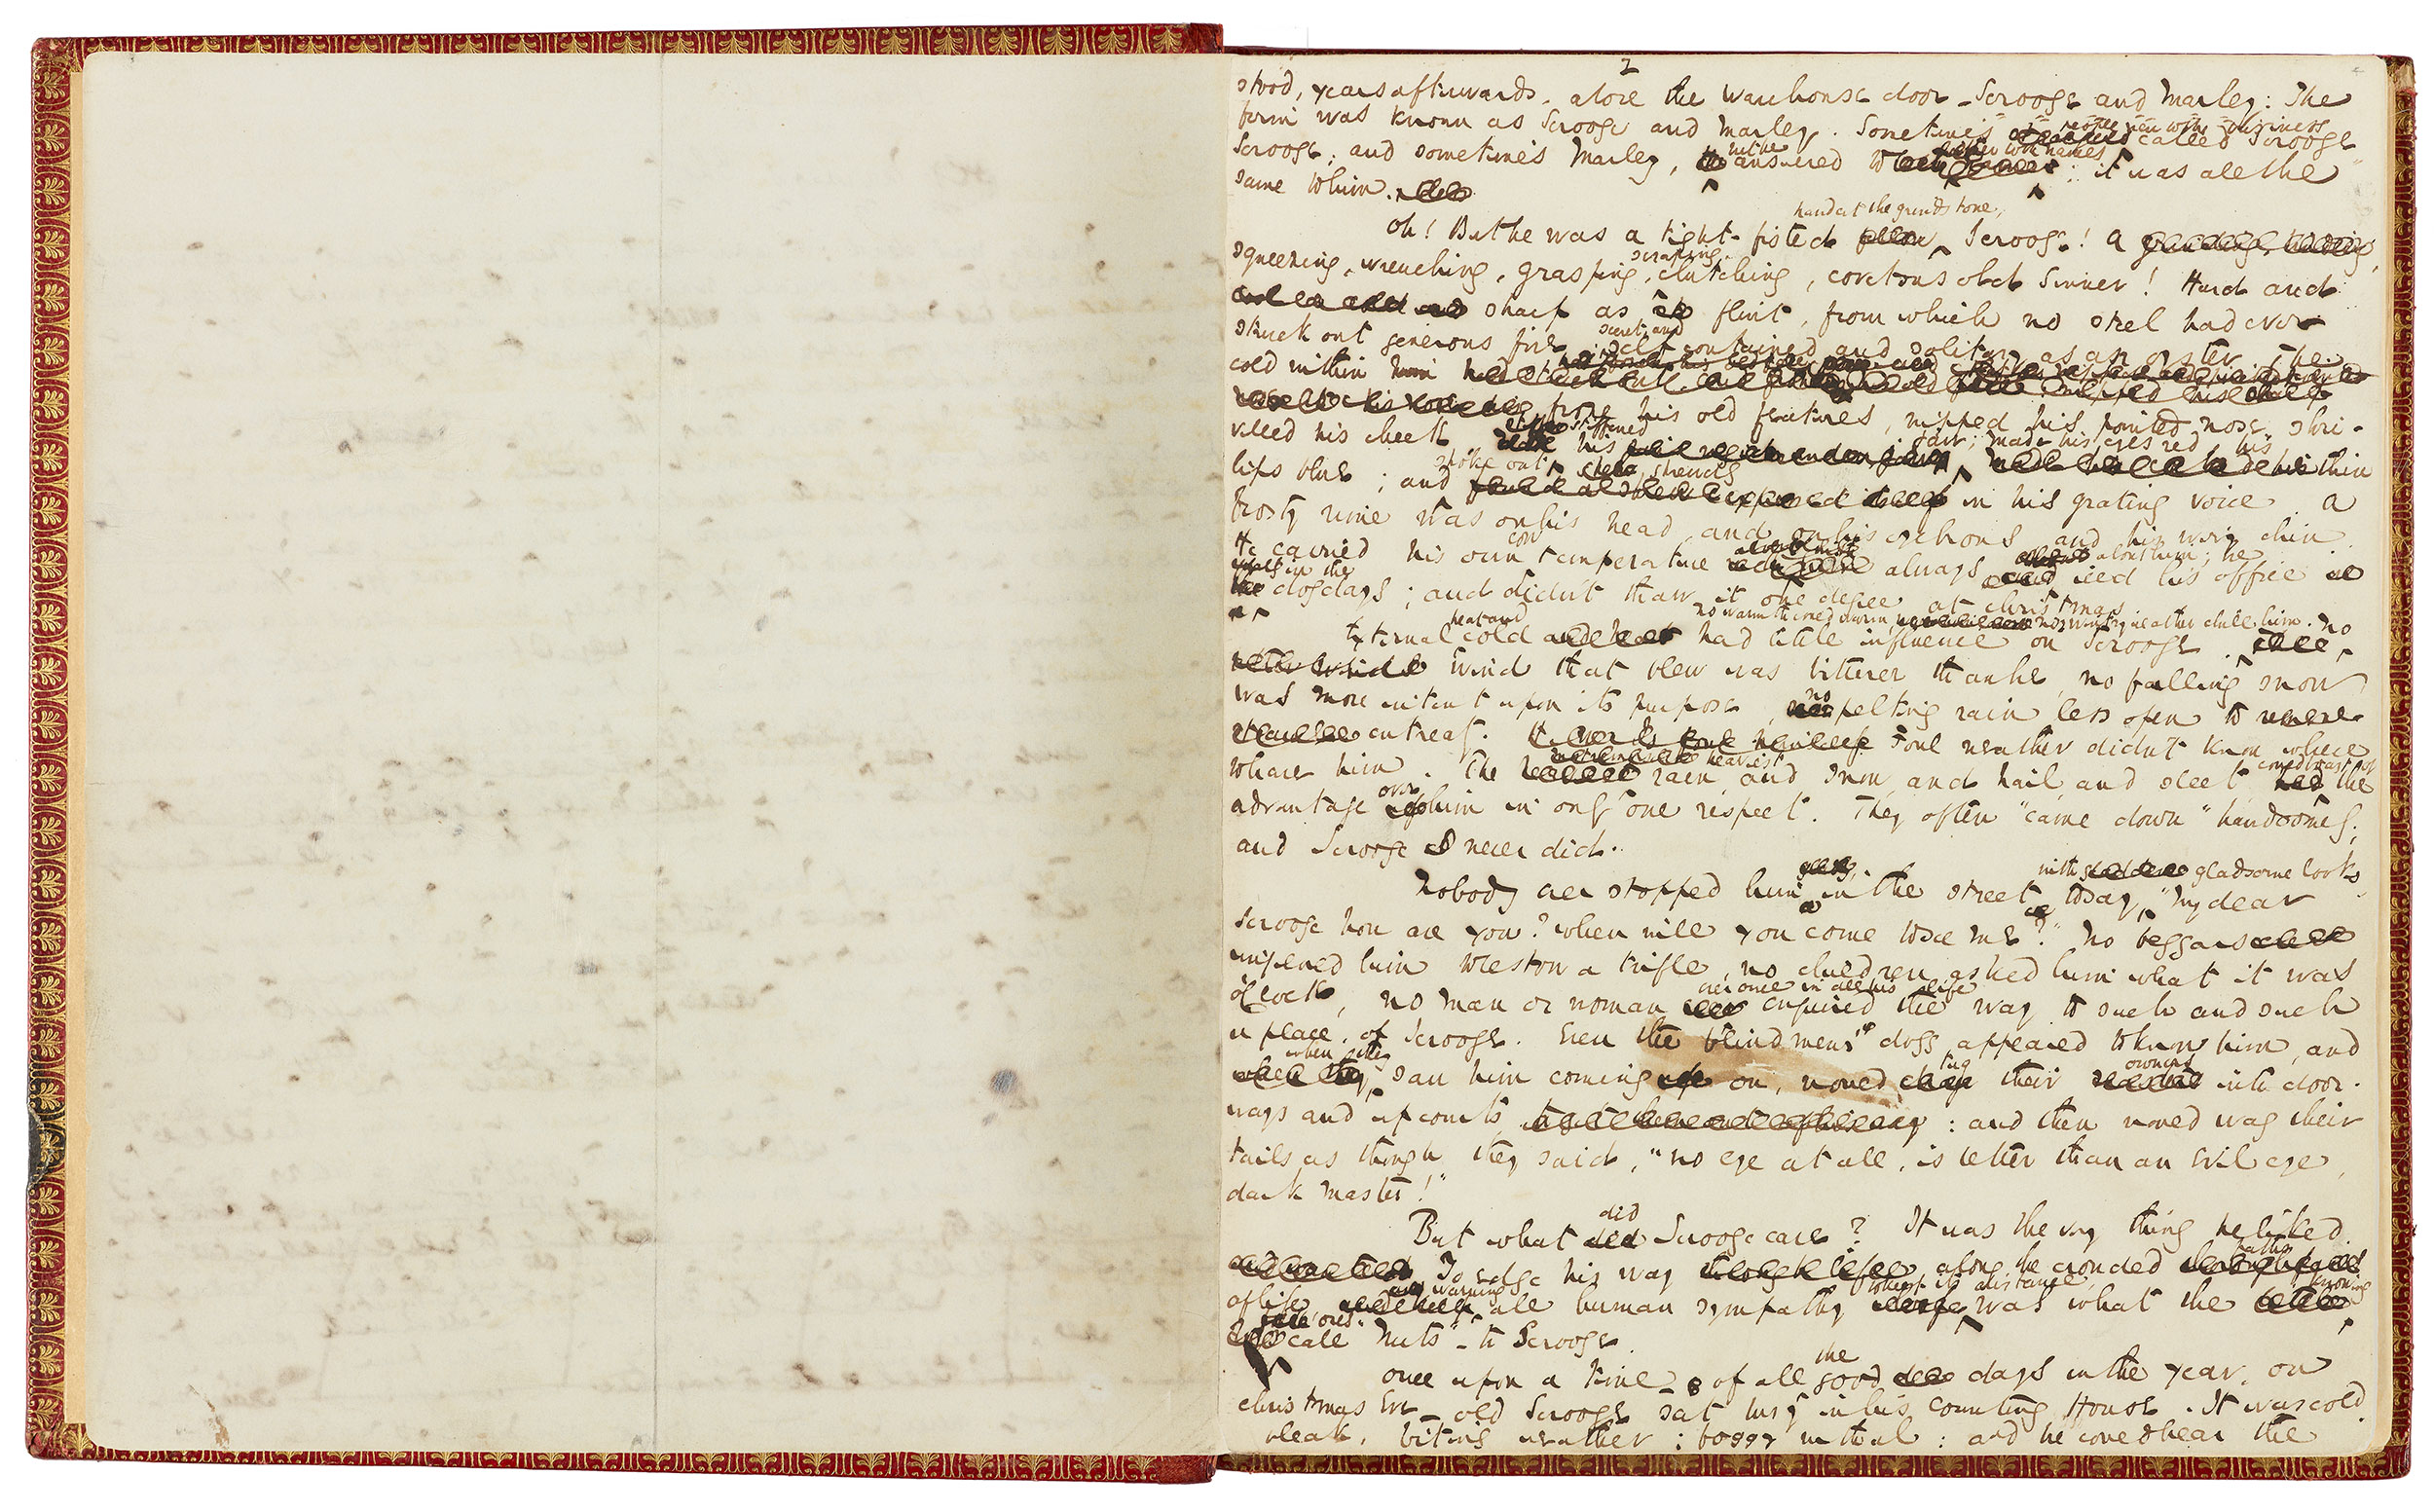 2
stood, years afterwards, above the warehouse door - Scrooge and Marley: The
firm was known as Scrooge and Marley. Sometimes people new to the business called Scrooge
Scrooge; and sometimes Marley, he answered to both names: it was all the
same to him.
Oh! But he was a tight-fisted hand at the grindstone, Scrooge! A
squeezing, wrenching, grasping, scraping, clutching, covetous old sinner! Hard and
sharp as flint, from which no steel had ever
struck out generous fire secret and self contained and solitary as an oyster. The
cold within him
froze his old features, nipped his pointed nose, shri-
velled his cheek, stiffened his gait; made his eyes red his thin
lips blue; and spoke out shrewdly in his grating voice. A
frosty rime was on his head, and on his eyebrows and his wiry chin.
He carried his own low temperature always about him; he iced his office in
the dogdays; and didn't thaw it one degree at Christmas.
External heat and cold had little influence on Scrooge. no warmth could warm nor wintry weather chill him. No
wind that blew was bitterer than he, no falling snow
was more intent upon its purpose, no pelting rain less open to
entreaty. Foul weather didn't know where
to have him. The heaviest rain and snow and hail and sleet could boast of the
advantage over him in only one respect. They often "came down" handsomely;
and Scrooge never did.
Nobody ever stopped him in the street to say, with gladsome looks, "My dear
Scrooge how are you? when will you come to see me?" No beggars
implored him to bestow a trifle, no children asked him what it was
o'clock, no man or woman ever once in all his life enquired the way to such and such
a place, of Scrooge. Even the blindmens' dogs appeared to know him, and
when they saw him coming on, would tug their owners into door-
ways and up courts: and then would wag their
tails as though they said, "no eye at all, is better than an evil eye,
dark master!"
But what did Scrooge care? It was the very thing he liked.
To edge his way along the crowded paths
of life warning all human sympathy to keep its distance, was what the knowing
ones call "nuts" - to Scrooge.
Once upon a time - of all the good days in the year, on
Christmas Eve - old Scrooge sat busy in his Counting House. It was cold
bleak, biting weather: foggy withal: and he could hear the